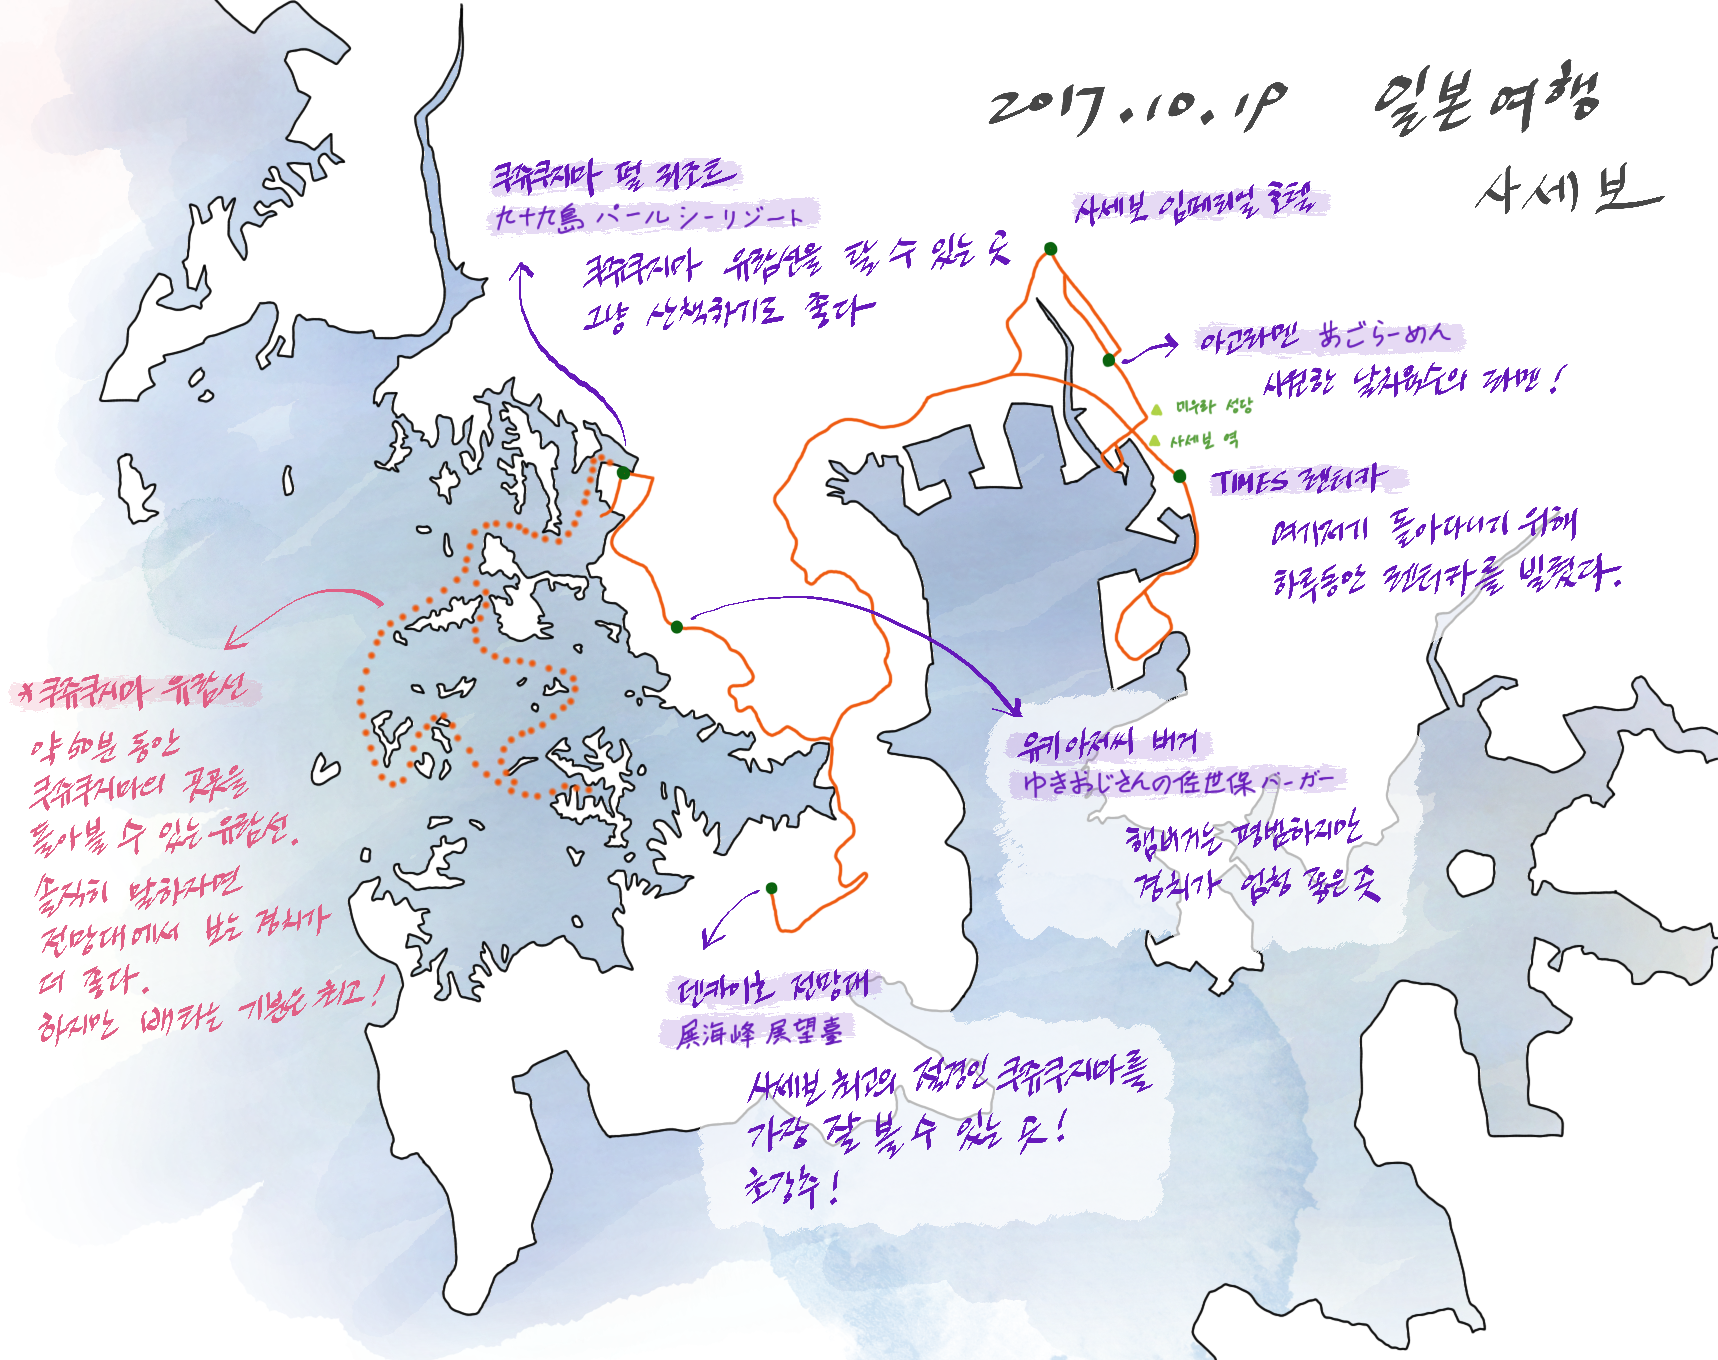 2017.10.19 일본여행
사세보
쿠쥬쿠지마 펄 리조트
九十九島 パールシーリゾート
쿠쥬쿠지마 유람선을 탈 수 있는 곳
그냥 산책하기도 좋다
사세보 임페리얼 호텔
아고라멘 あごらーめん
시원한 날치육수의 라멘!
미우라 성당
사세보 역
TIMES 렌터카
여기저기 돌아다니기 위해
하루동안 렌터카를 빌렸다.
*쿠쥬쿠지마 유람선
약 50분 동안
쿠쥬쿠지마의 곳곳을
돌아볼 수 있는 유람선.
솔직히 말하자면
전망대에서 보는 경치가
더 좋다.
하지만 배타는 기분은 최고!
유키아저씨 버거
ゆきおじさんの佐世保バーガー
햄버거는 평범하지만
경치가 엄청 좋은 곳
덴카이호 전망대
展海峰 展望臺
사세보 최고의 절경인 쿠쥬쿠지마를
가장 잘 볼 수 있는 곳!
초강추!